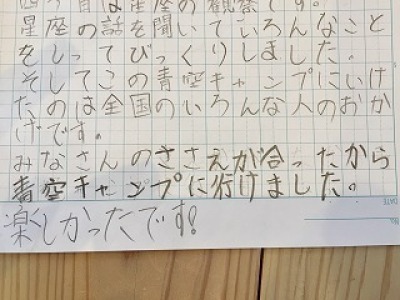 星座の話を聞いていろんなこと
をしってびっくりしました。
そしてこの青空キャンプにいけ
たのは全国のいろんな人のおか
げです。
みなさんのささえが合ったから
青空キャンプに行けました。
楽しかったです!
DATE
NO.